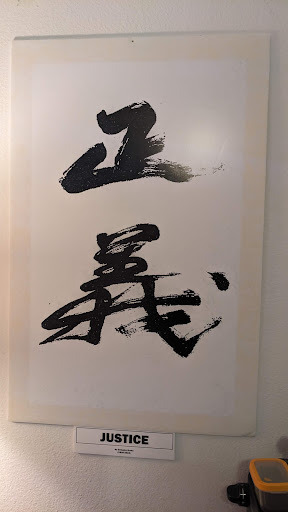 正
義
JUSTICE